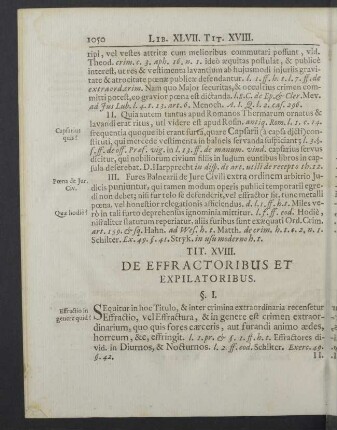 1050 LIB. XLVII. TIT. XVIII.
ripi, vel vestes attritæ cum melioribus commutari possunt, vid.
Theod. crim. c. 3. aph. 16. n. 1. ideò æquitas postulat, & publicè
interest, ut res & vestimenta lavantium ab hujusmodi injuriis gravi-
tate & atrocitate publicæ pœnæ defendantur. l. 1. ff. h. t. l. 7. ff. de
extraord. crim. Nam quo Major securitas, & occasius crimen com-
mitti potest, eo gravior pœna est dictanda.
ad Jus Lub. l. 4. t. 13. art. 6. Menoch. A. I. Q. l. 2. cas. 296.
II. Quia autem tantus apud Romanos Thermarum ornatus &
lavandi erat ritus, uti videre est apud Rosin. antiq. Rom. l. 1. c. 14.
Capsarius
quis?
frequentia quoque ibi erant furta, quare Capsarii (à capsa dicti) con-
stituti, qui mercede vestimenta in balneis servanda suscipiunt; l. 3. §.
5. ff. de off. Præf. vig. in l. 13. ff. de manum. vind. capsarius servus
discitur, qui nobiliorum civium filiis in ludum euntibus libros in cap-
sula deferebat. D. Harpprecht in diss. de act. utili de recepto th. 12.
Pœna de Jur.
Civ.
III. Fures Balnearii de Jure Civili extra ordinem arbitrio Ju-
dicis puniuntur, qui tamen modum operis publici temporarii egre-
di non debet; nisi fur telo se defenderit, vel effractor sit, tunc metalli
pœna, vel honestior relegationis afficiendus. d. l. 1. ff. h. t. Miles ve-
Qua hodie?
rò in tali furto deprehensus ignominia mittitur. l. f. ff. eod. Hodiè,
nisi qualitas furatum reperiatur, aliis furibus sunt exæquati Ord. Crim.
art. 159. & sq. Hahn. ad Wes. h. t. Matth. de crim. h. t. c. 2. n. 1.
Schilter. Ex. 49. §. 41. Stryk. in usu moderno h. t.
TIT. XVIII.
DE EFFRACTORIBUS ET
EXPILATORIBUS.
§. I.
Effractio in
genere quid?
SEquitur in hoc Titulo, & inter crimina extraordinaria recensetur
Effractio, vel Effractura, & in genere est crimen extraor-
dinarium, quo quis fores carceris, aut furandi animo ædes,
horreum, &c. effringit. l. 1. pr. & §. 1. ff. h. t. Effractores di-
vid. in Diurnos, & Nocturnos. l. 2. ff. eod. Schilter. Exerc. 49.
§. 42. II.